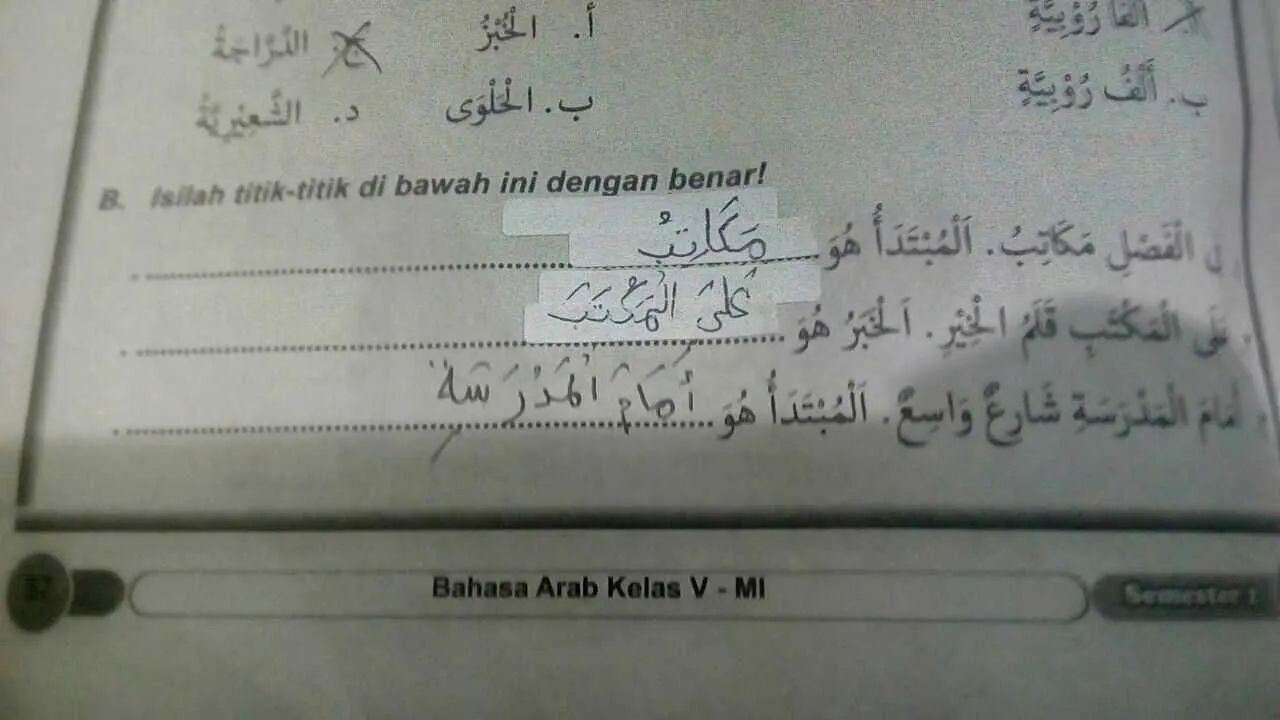 أ. الْخُبْزُ
ج. الدَّرَاجَةُ
ب. أَلْفُ رُوْبِيَّةٍ
ب. الْحَلْوَى
د. الشَّعِيْرِيَّةُ
B. Isilah titik-titik di bawah ini dengan benar!
الْفَصْلِ مَكَاتِبُ. اَلْمُبْتَدَأُ هُوَ مَكَاتِبُ
الْمَكْتَبِ قَلَمُ الْحِبْرِ. اَلْخَبَرُ هُوَ عَلَى الْمَكْتَبَ
أَمَامَ الْمَدْرَسَةِ شَارِعٌ وَاسِعٌ. اَلْمُبْتَدَأُ هُوَ أَمَامَ الْمَدْرَسَة
Bahasa Arab Kelas V - MI
Semester 1